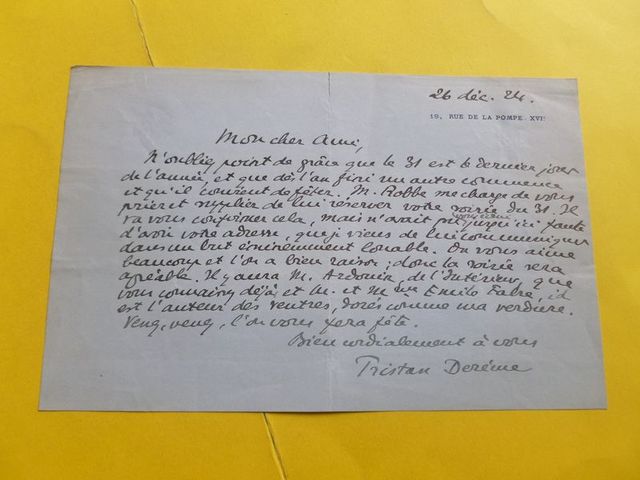 26 déc. 24.
19, RUE DE LA POMPE. XVIE
Mon cher Ami,
N'oubliez point de grâce que le 31 est le dernier jour
de l'année, et que dès l'an fini un autre commence
et qu'il convient de fêter. M. Robbe me charge de vous
prier et supplier de lui réserver votre soirée du 31. Il
va vous confirmer cela, mais n'avait pu vous écrire jusqu'ici faute
d'avoir votre adresse, que je viens de lui communiquer
dans un but éminemment louable. On vous aime
beaucoup et l'on a bien raison ; donc la soirée sera
agréable. Il y aura M. Ardouin, de l'Intérieur, que
vous connaissez déjà, et M. et Mme Emile Fabre, i.d.
est l'auteur des Ventres, dorés comme ma verdière.
Venez, venez, l'on vous fera fête.
Bien cordialement à vous
Tristan Derème